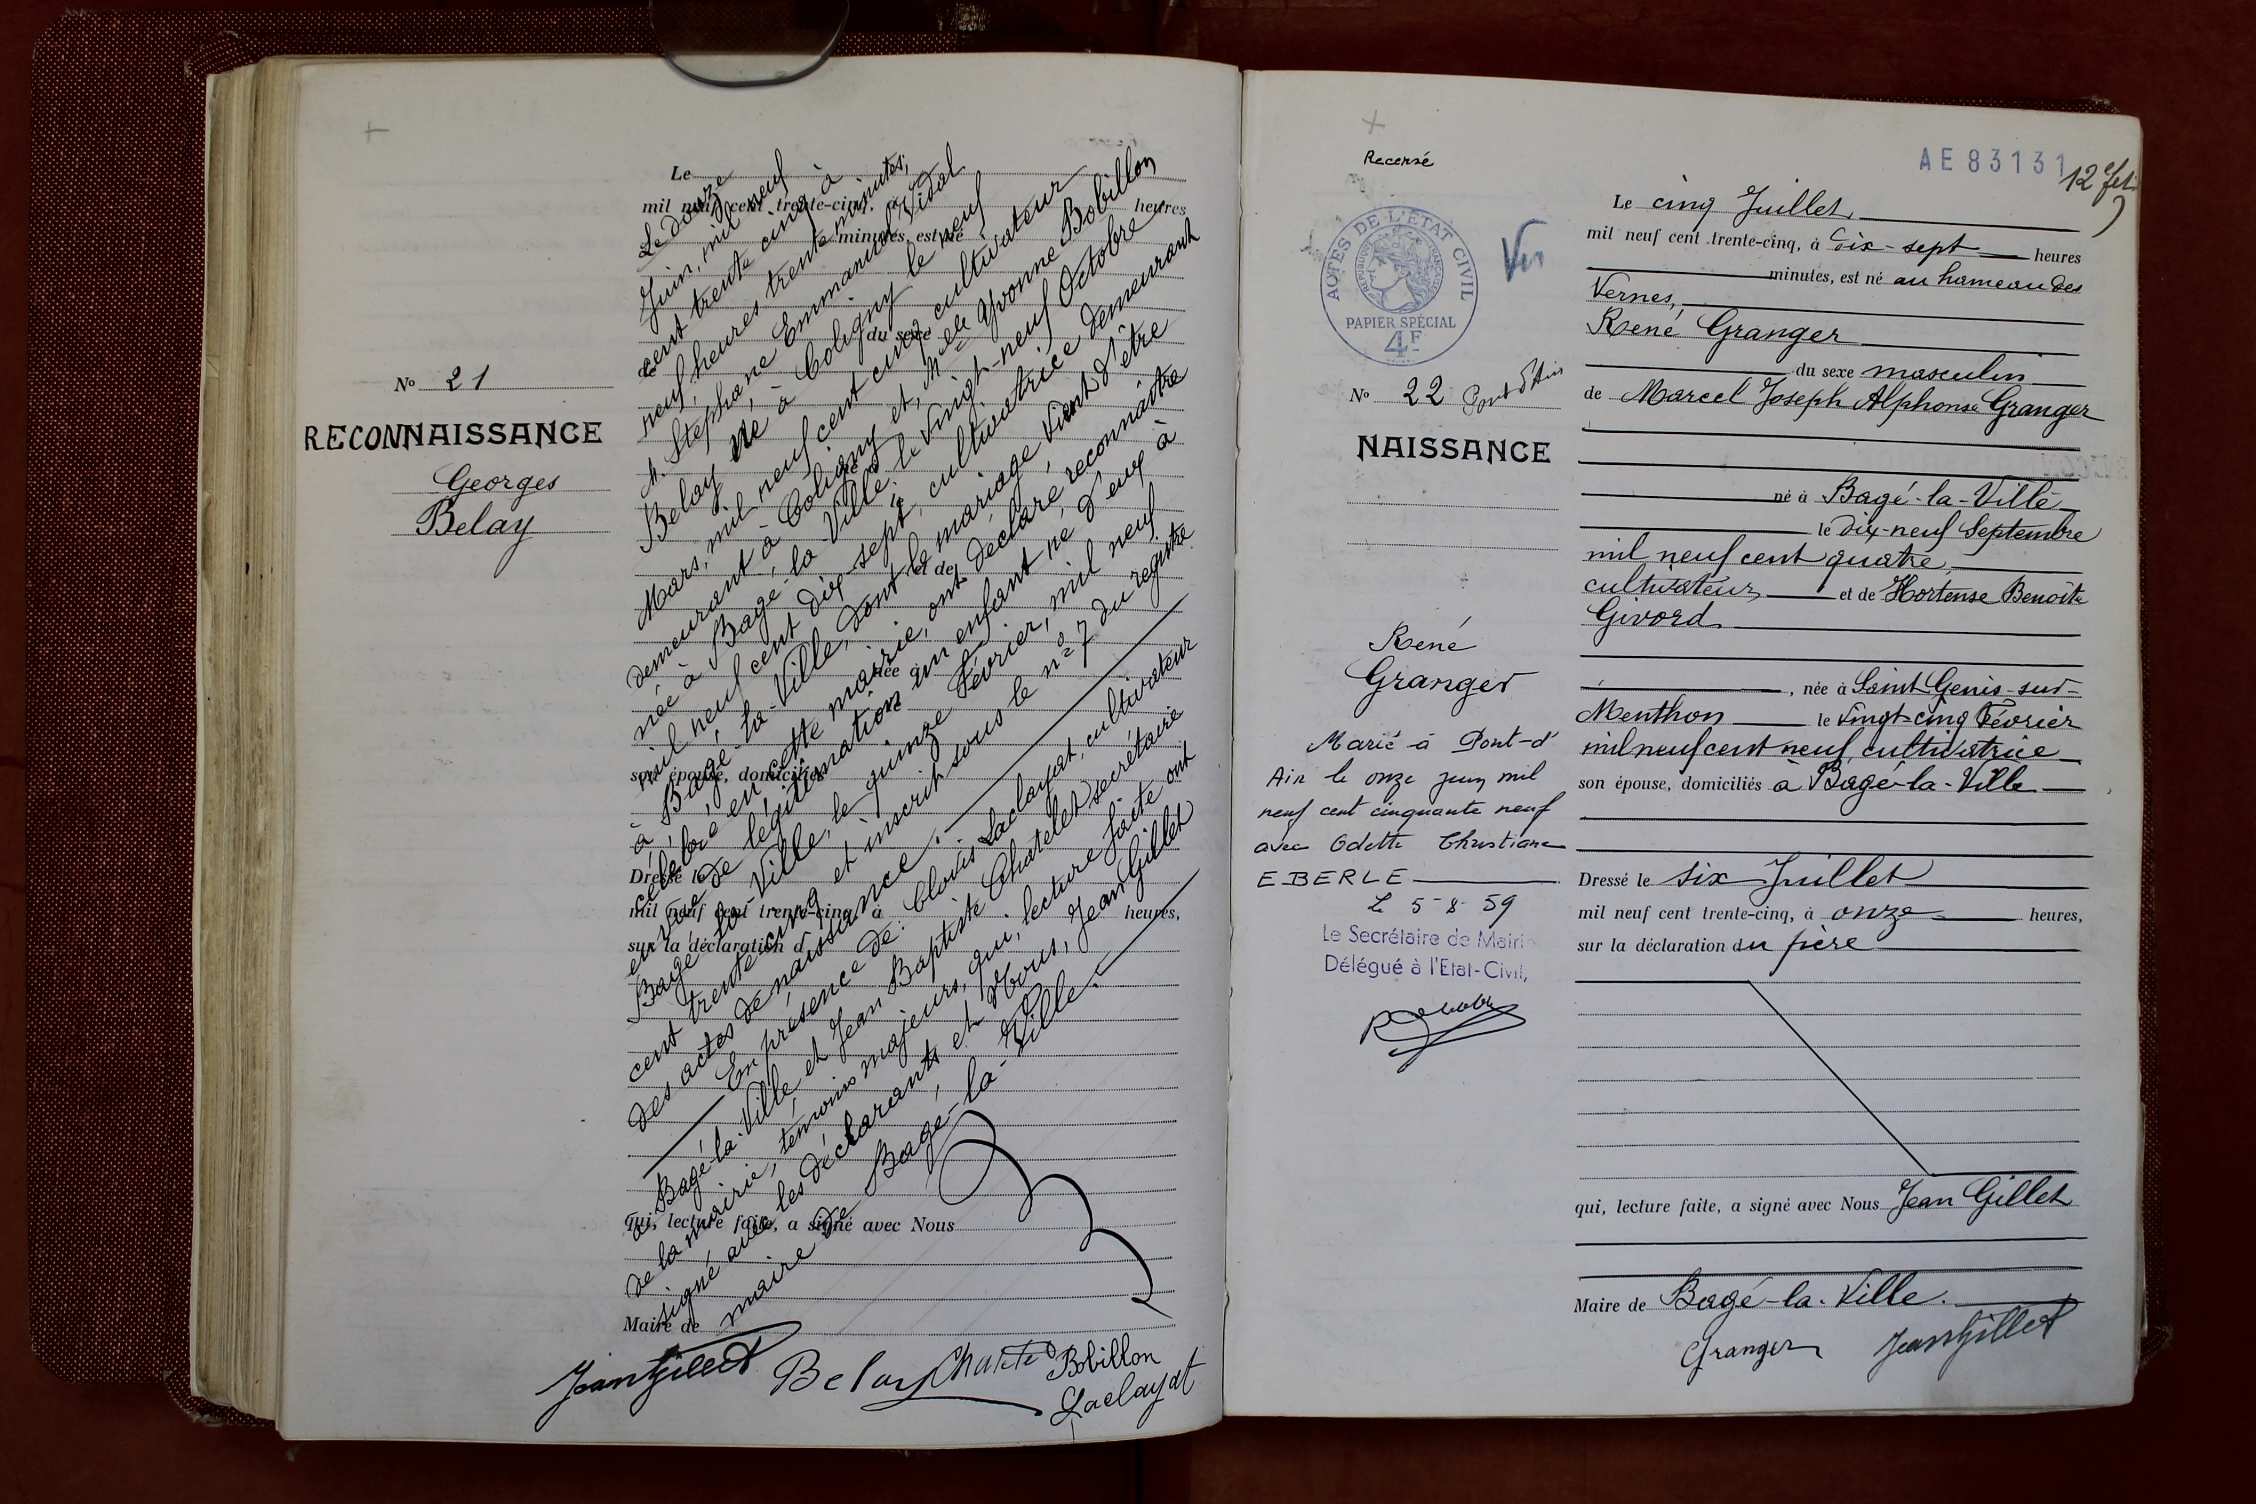 N° 21
RECONNAISSANCE
Georges
Belay
Le
mil neuf cent trente-cinq, à heures
minutes, est né
du sexe
de
né à
le
et de
née à
son épouse, domiciliés
Dressé le
mil neuf cent trente-cinq, à heures,
sur la déclaration d
qui, lecture faite, a signé avec Nous
Maire de
Le douze
Juin, mil neuf
cent trente cinq à
neuf heures trente minutes,
M. Stéphane Emmanuel Vidal
Belay né à Coligny le neuf
Mars, mil neuf cent cinq cultivateur
demeurant à Coligny et, Melle Yvonne Bobillon
née à Bagé-la-Ville le vingt-neuf Octobre
mil neuf cent dix-sept, cultivatrice demeurant
à Bagé-la-Ville, dont le mariage vient d'être
célébré en cette mairie, ont déclaré, reconnaître
en vue de légitimation un enfant né d'eux à
Bagé-la-Ville, le quinze Février, mil neuf
cent trente cinq et inscrit sous le n° 7 du registre
des actes de naissance.
En présence de: Clovis Laclayat, cultivateur
à Bagé-la-Ville et Jean Baptiste Chatelet secrétaire
de la mairie, témoins majeurs, qui, lecture faite ont
signé avec les déclarants et Nous, Jean Gillet
maire de Bagé-la-Ville.
Jean Gillet Belay Bobillon
Laclayat
Recensé
AE83131
ACTES DE L'ETAT CIVIL
REPUBLIQUE FRANÇAISE
PAPIER SPÉCIAL
4F
Vu
N° 22 Pont d'Ain
NAISSANCE
René
Granger
Marié à Pont-d'
Ain le onze juin mil
neuf cent cinquante neuf
avec Odette Christiane
EBERLE
Le 5-8-59
Le Secrétaire de Mairie
Délégué à l'Etat-Civil,
Le cinq Juillet
mil neuf cent trente-cinq, à dix-sept heures
minutes, est né au hameau des
Vernes,
René Granger
du sexe masculin
de Marcel Joseph Alphonse Granger
né à Bagé-la-Ville
le dix-neuf Septembre
mil neuf cent quatre,
cultivateur, et de Hortense Benoîte
Givord
, née à Saint Genis-sur-
Menthon le vingt-cinq Février
mil neuf cent neuf, cultivatrice
son épouse, domiciliés à Bagé-la-Ville
Dressé le six Juillet
mil neuf cent trente-cinq, à onze heures,
sur la déclaration du père
qui, lecture faite, a signé avec Nous Jean Gillet
Maire de Bagé-la-Ville.
Granger Jean Gillet